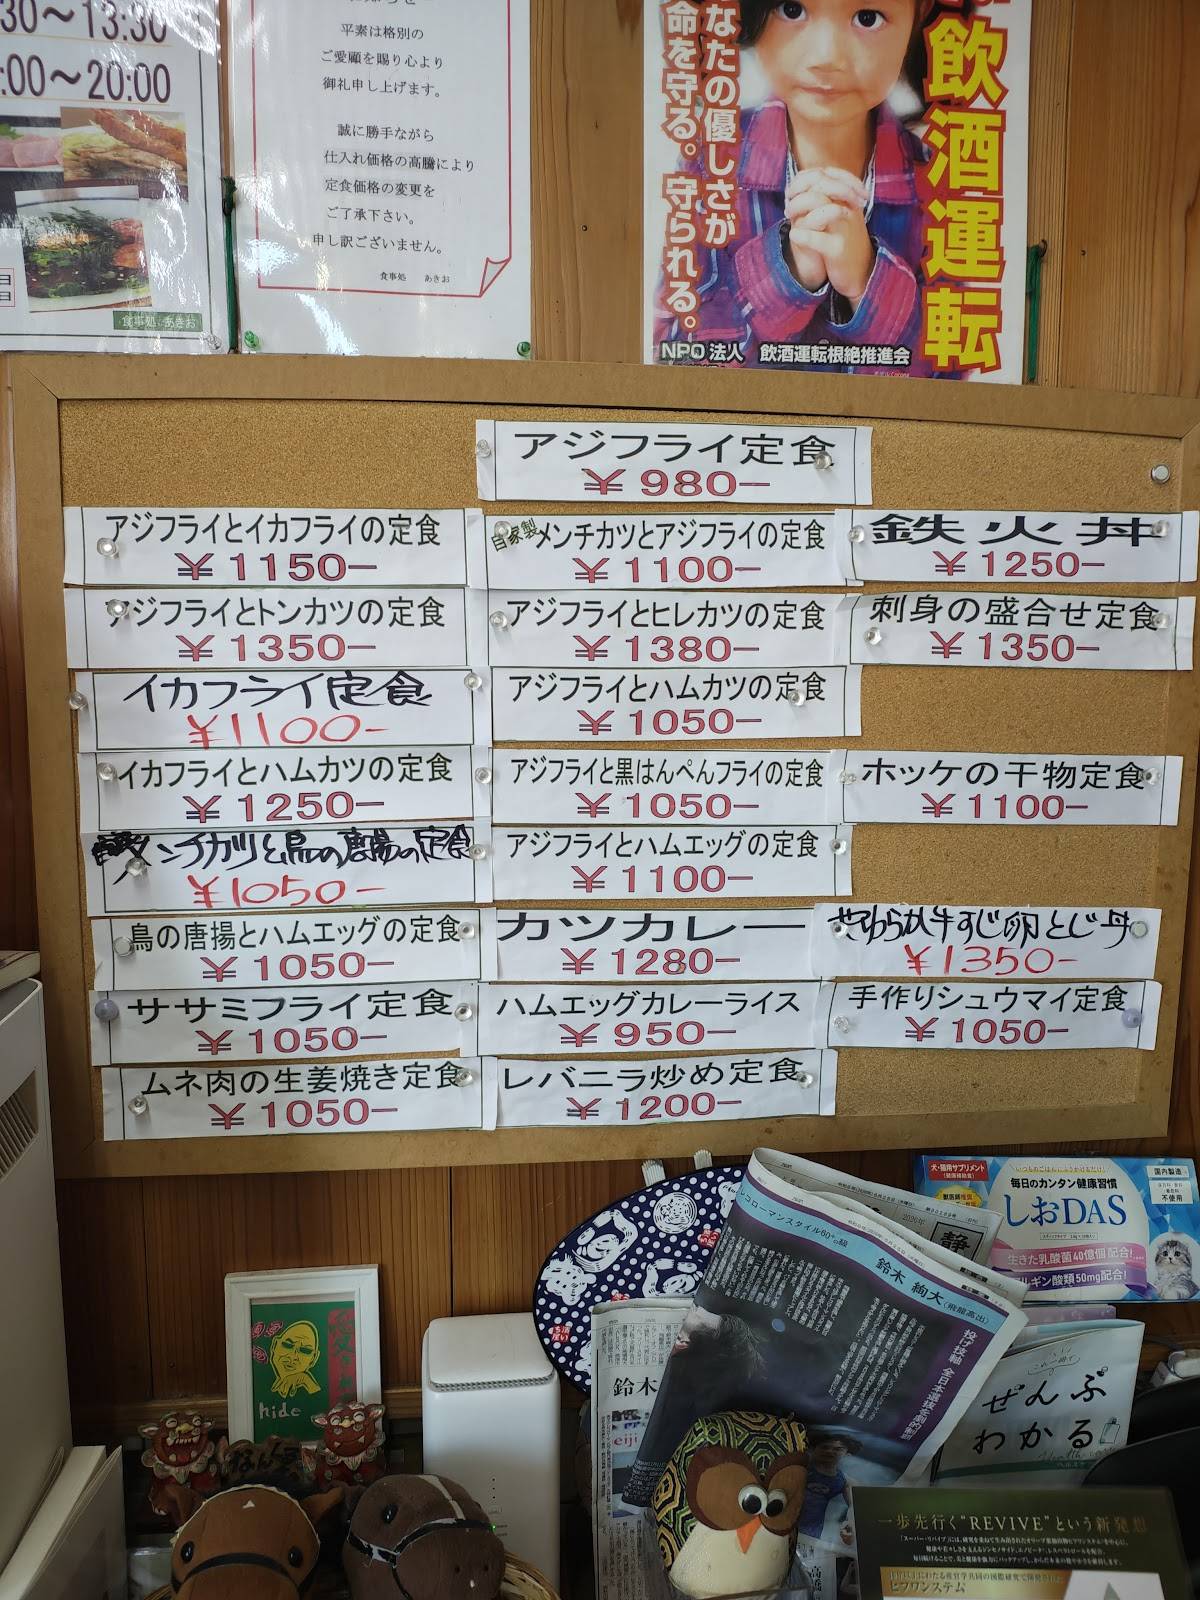 30～13:30
:00～20:00
食事処 あきお
平素は格別の
ご愛顧を賜り心より
御礼申し上げます。
誠に勝手ながら
仕入れ価格の高騰により
定食価格の変更を
ご了承下さい。
申し訳ございません。
食事処 あきお
飲酒運転
なたの優しさが
命を守る。守られる。
NPO法人 飲酒運転根絶推進会
アジフライ定食
¥980-
アジフライとイカフライの定食
¥1150-
アジフライとトンカツの定食
¥1350-
イカフライ定食
¥1100-
イカフライとハムカツの定食
¥1250-
メンチカツと鳥の唐揚の定食
¥1050-
鳥の唐揚とハムエッグの定食
¥1050-
ササミフライ定食
¥1050-
ムネ肉の生姜焼き定食
¥1050-
自家製メンチカツとアジフライの定食
¥1100-
アジフライとヒレカツの定食
¥1380-
アジフライとハムカツの定食
¥1050-
アジフライと黒はんぺんフライの定食
¥1050-
アジフライとハムエッグの定食
¥1100-
カツカレー
¥1280-
ハムエッグカレーライス
¥950-
レバニラ炒め定食
¥1200-
鉄火丼
¥1250-
刺身の盛合せ定食
¥1350-
ホッケの干物定食
¥1100-
やわらか牛すじ卵とじ丼
¥1350-
手作りシュウマイ定食
¥1050-
犬・猫用サプリメント
いつものごはんにふりかけるだけ!
毎日のカンタン健康習慣
しおDAS
国内製造
不使用
生きた乳酸菌40億個配合!
ルギン酸類50mg配合!
レコローマンスタイル60㌔級
鈴木 絢大
(飛龍高出)
投げ技軸 全日本選抜を劇的制覇
静
2026年
鈴木
eiji
ぜんぶ
わかる
hide
一歩先行く"REVIVE"という新発想